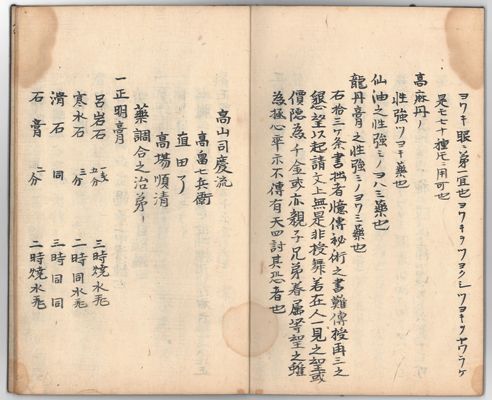 ヨワキ眼ニ第一宜也ヨワキヲツヨクシツヨキヲヤワラケ
足七七十種尤ニ用可也
高麻丹ノ
性強ツヨキ藥也
仙油之性強ミノヨハミ藥也
龍丹膏之性強ミノヨワミ藥也
石拾三ケ条書拙者憶傳秘術之書難傳授再三之
懇望以起請文上無是非授舞若在人一見之望或
價隠為千金或亦親子兄弟眷属等望之雖
為極心卒示不傳有天四討其恐者也
高山司慶流
高畠七兵衛
直田了
高場順清
藥調合之治第一
一正明膏
呂岩石 一匁五分 三時焼水飛
寒水石 三分 二時同水飛
滑石 同 三時同同
石膏 一分 二時焼水飛